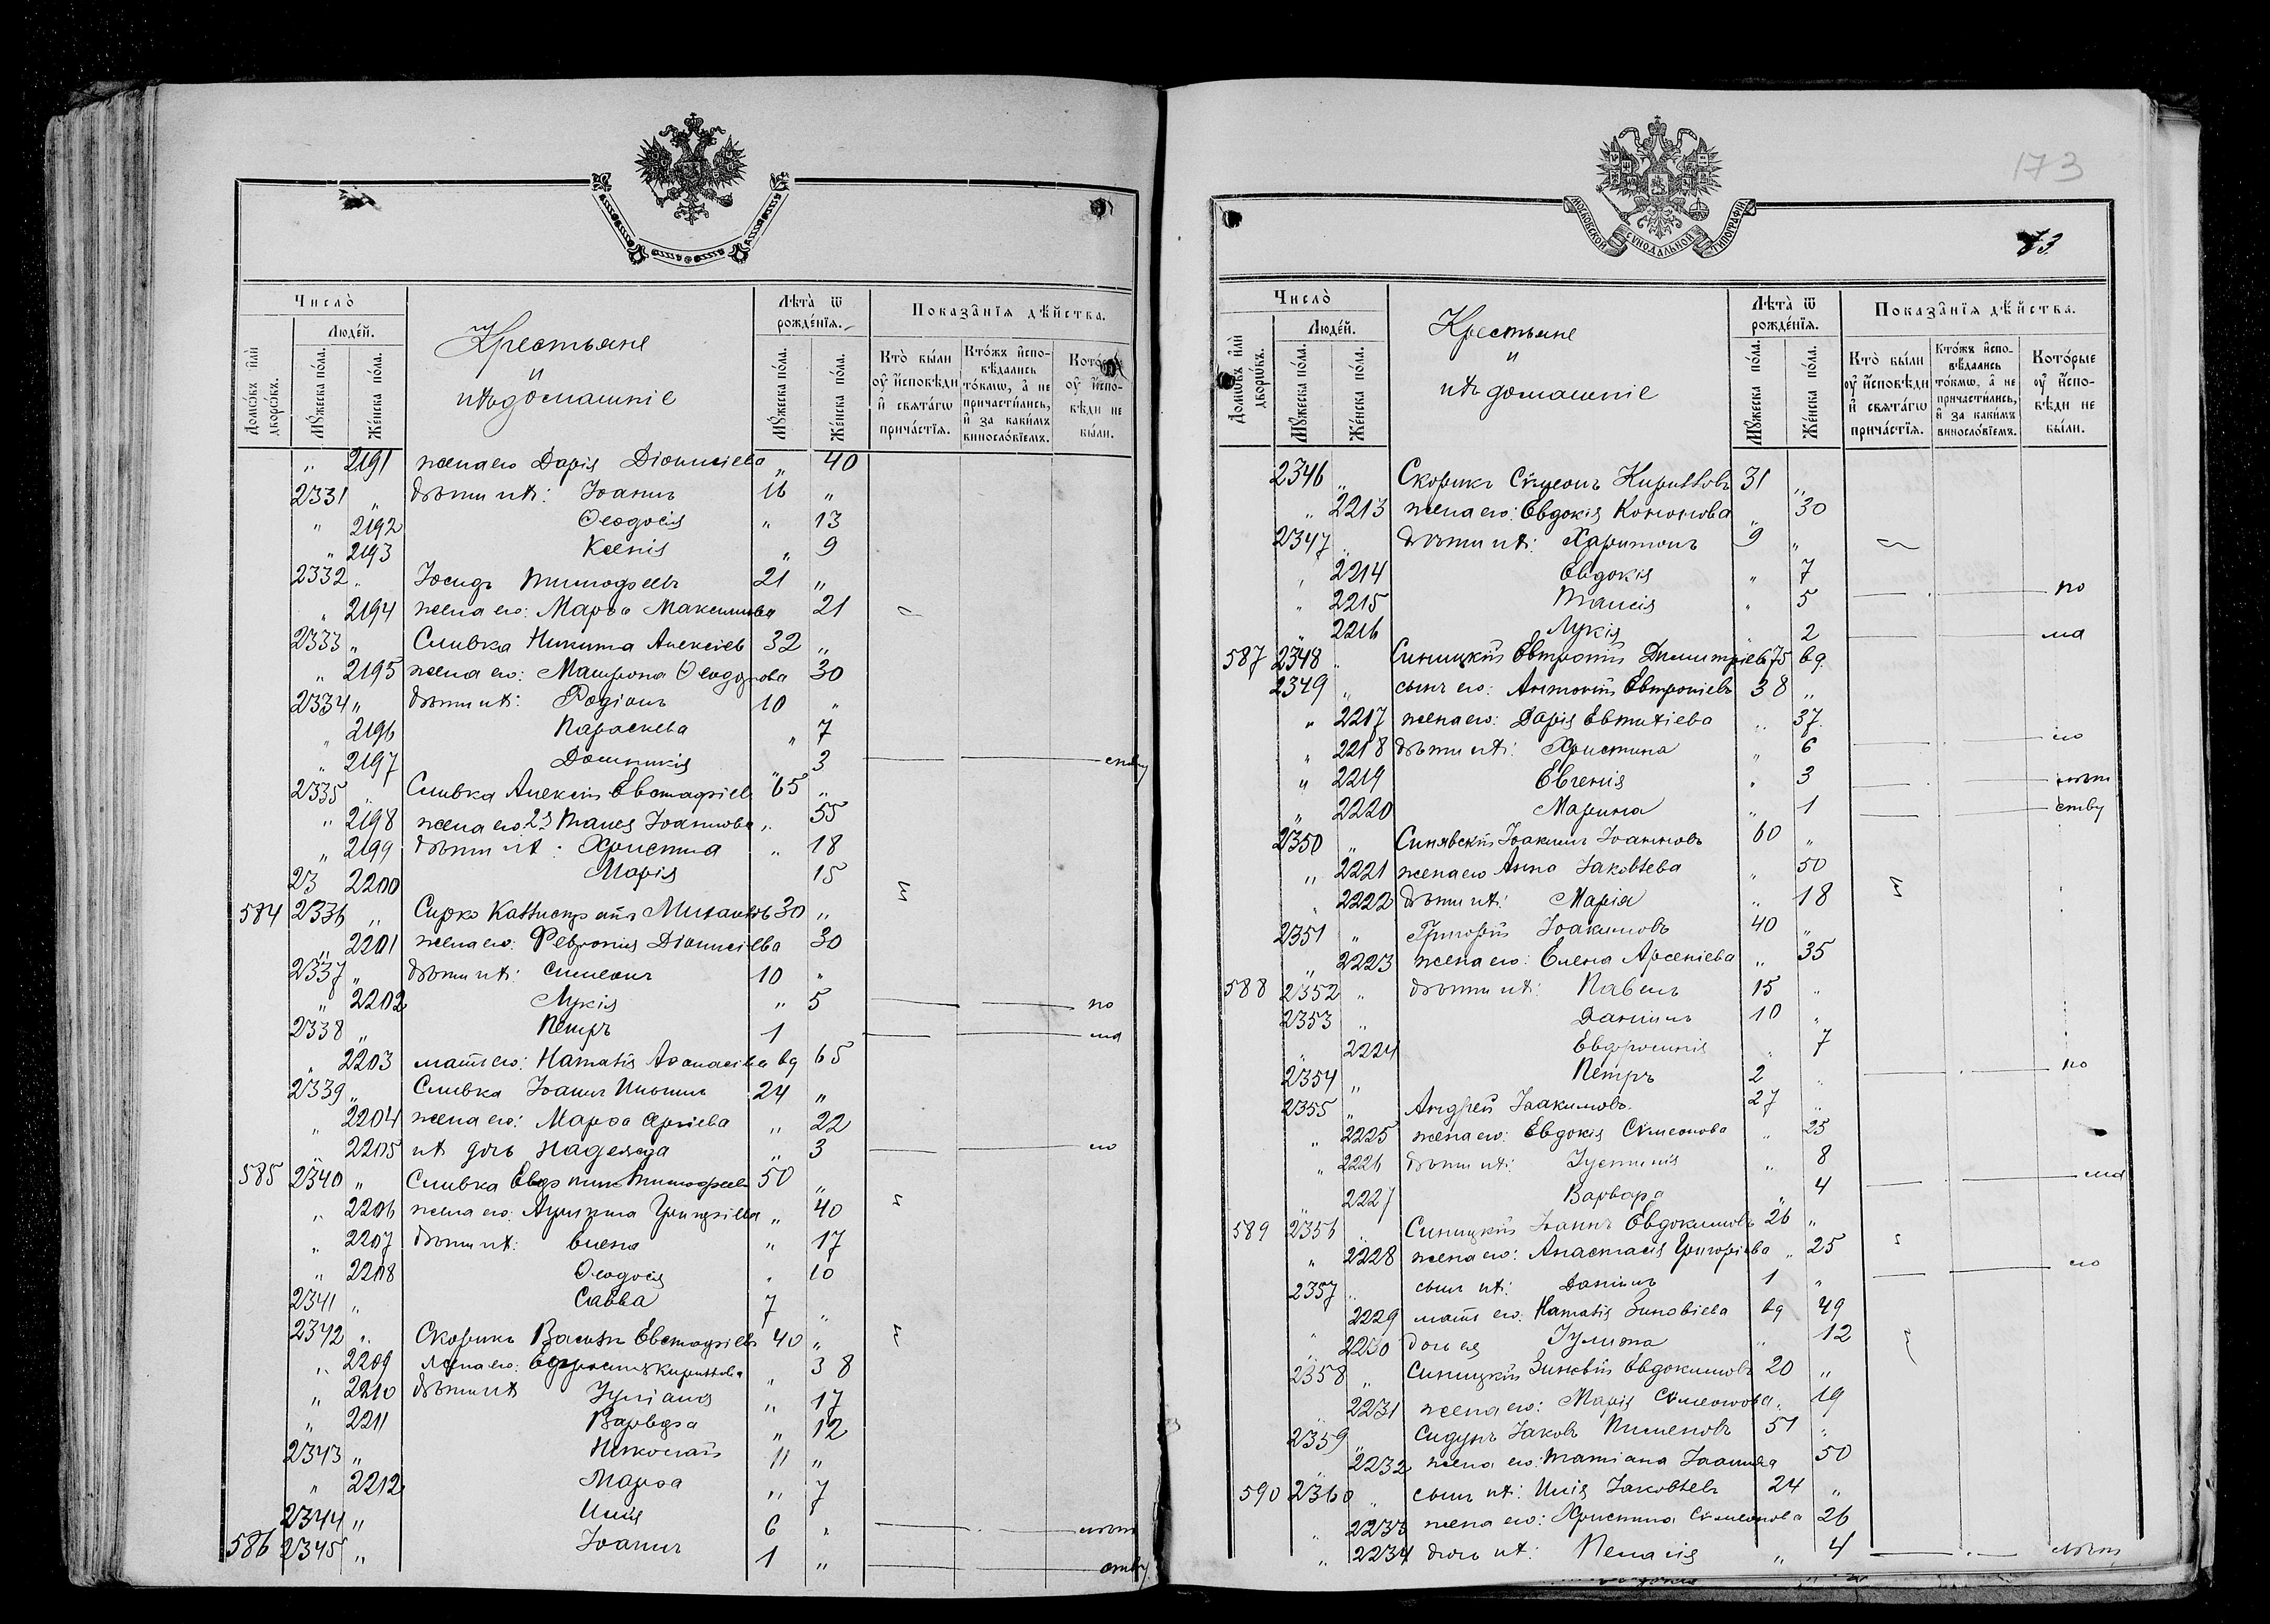 Число̀
Люде́й.
Домѡ́въ и҆лѝ дворѡ́въ.
Мꙋ́жеска по́ла.
Же́нска по́ла.
Крестьяне
и
ихъ домашніе
Лѣта̀ ѿ рожде́нїѧ.
Мꙋ́жеска по́ла.
Же́нска по́ла.
Показа̑нїѧ дѣ́йства.
Кто̀ бы́ли оу҆ и҆сповѣ́ди и҆ свѧта́гѡ прича́стїѧ.
Кто́жъ и҆сповѣ́дались то́кмѡ, а҆ не причасти́лись, и҆ за каки́мъ виносло́вїемъ.
Кото́рые оу҆ и҆спо-вѣ́ди не бы́ли.
„ 2191 жена его Дарія Діонисіева „ 40
2331 „ дѣти ихъ: Іоаннъ 16 „
„ 2192 Ѳеодосія „ 13
„ 2193 Ксенія „ 9
2332 „ Іосифъ Тимофеевъ 21 „
„ 2194 жена его: Марѳа Максимова 21
2333 „ Сливка Никита Алексіев 32 „
„ 2195 жена его: Матрона Ѳеодорова 30
2334 „ дѣти ихъ: Родіонъ 10 „
„ 2196 Параскева „ 7
„ 2197 Домникія 3 ству
2335 „ Сливка Алексій Евстафіев 65 „
„ 2198 жена его 2я Таисія Іоаннова „ 55
„ 2199 дѣти ихъ: Христина „ 18
23 2200 Марія 15
584 2336 „ Сирко Каллистратъ Михаиловъ 30 „
„ 2201 жена его: Февронія Діонисіева 30
2337 „ дѣти ихъ: Симеонъ 10 „
„ 2202 Лукія „ 5 по
2338 „ Петръ 1 ма
„ 2203 мать его: Наталія Аѳанасіева вд 65
2339 „ Сливка Іоаннъ Ильинъ 24 „
„ 2204 жена его: Марѳа „ 22
„ 2205 их дочь Надежда „ 3 ло
585 2340 „ Сливка Тимофеев 50 „
„ 2206 жена его: „ 40
„ 2207 дѣти ихъ: Елена „ 17
„ 2208 Ѳеодосія „ 10
2341 „ Савва 7 „
2342 „ Скорикъ Василій Евстафіевъ 40 „
„ 2209 жена его: Ефросинія Кириллова „ 38
„ 2210 дѣти ихъ Іуліанія „ 17
„ 2211 Варвара „ 12
2343 „ Николай 11 „
„ 2212 Марѳа „ 7
2344 „ Илія 6 „ лѣт
586 2345 „ Іоаннъ 1 „ ству
173
МОСКОВСКОЙ СѴНОДАЛЬНОЙ ТИПОГРАФІИ
73.
Число̀
Люде́й.
Домѡ́въ и҆лѝ дворѡ́въ.
Мꙋ́жеска по́ла.
Же́нска по́ла.
Крестьяне
и
ихъ домашніе
Лѣта̀ ѿ рожде́нїѧ.
Мꙋ́жеска по́ла.
Же́нска по́ла.
Показа̑нїѧ дѣ́йства.
Кто̀ бы́ли оу҆ и҆сповѣ́ди и҆ свѧта́гѡ прича́стїѧ.
Кто́жъ и҆спо-вѣ́дались то́кмѡ, а҆ не причасти́лись, и҆ за каки́мъ виносло́вїемъ.
Кото́рые оу҆ и҆спо-вѣ́ди не бы́ли.
2346 „ Скорикъ Сѵмеонъ Кирилловъ 31 „
„ 2213 жена его: Евдокія Кононова „ 30
2347 „ дѣти ихъ: Харитонъ 9 „
„ 2214 Евдокія „ 7
„ 2215 Таисія „ 5 по
„ 2216 Лукія 2 ма
587 2348 „ Синицкій Евтропій Димитріевъ 75 вд.
2349 „ сынъ его: Антоній Евтропіевъ 38 „
„ 2217 жена его: Дарія Евтихіева „ 37.
„ 2218 дѣти ихъ: Христина „ 6 ло
„ 2219 Евгенія „ 3 лѣт
„ 2220 Марина „ 1 ству
2350 „ Синявскій Іоакимъ Іоанновъ 60 „
„ 2221 жена его Анна Іаковлева „ 50
„ 2222 дѣти ихъ: Марія „ 18
2351 „ Григорій Іоакимовъ 40 „
„ 2223 жена его: Елена Арсеніева „ 35
588 2352 „ дѣти ихъ: Павелъ 15 „
2353 „ Даніилъ 10 „
„ 2224 Евфросинія „ 7
2354 „ Петръ 2 „ по
2355 „ Андрей Іоакимовъ 27 „
„ 2225 жена его: Евдокія Сѵмеонова „ 25
„ 2226 дѣти ихъ: Іустинія „ 8
„ 2227 Варвара „ 4 ма
589 2356 „ Синицкій Іоаннъ Евдокимовъ 26 „
„ 2228 жена его: Анастасія Григоріева „ 25
2357 „ сынъ ихъ: Даніилъ 1 „ ло
2229 мать его: Наталія Зиновіева вд 49
„ 2230 дочь ея Іулита „ 12
2358 „ Синицкій Зиновій Евдокимовъ 20 „
„ 2231 жена его: Марія Сѵмеонова „ 19
2359 „ Сидунъ Іаковъ Пименовъ 51 „
„ 2232 жена его: Татіана Іоаннова 50
590 2360 „ сынъ ихъ: Илія Іаковлевъ 24 „
„ 2233 жена его: Христина Сѵмеонова 26
„ 2234 дочь ихъ: Пелагія „ 4 лѣт